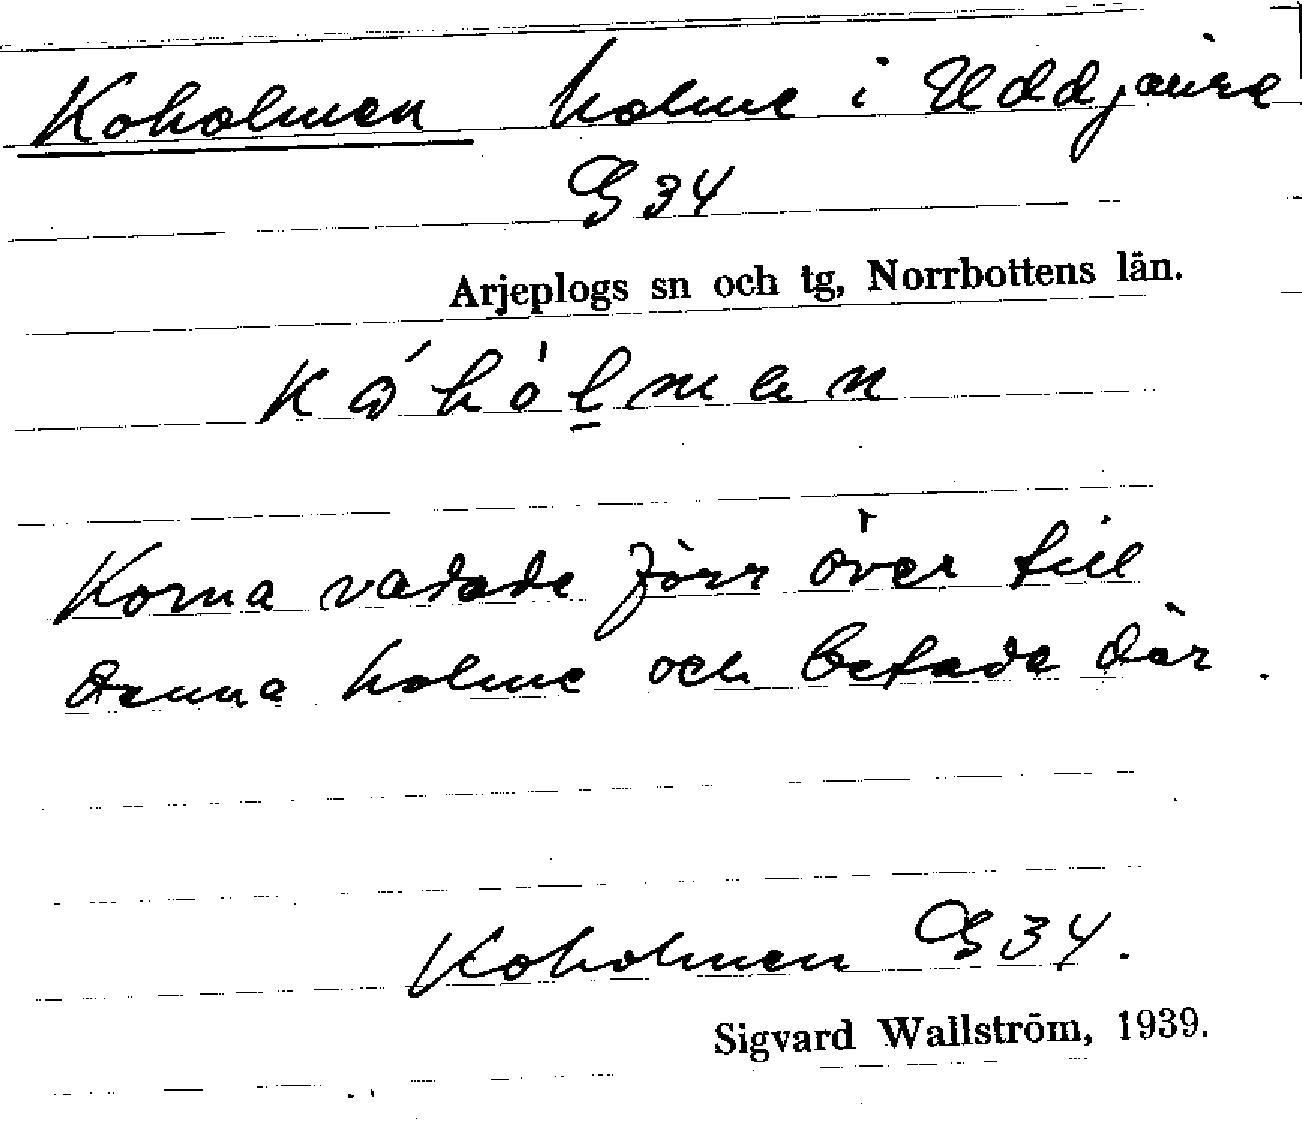 Koholmen holme i Uddjaure
G 34
Arjeplogs sn och tg, Norrbottens län.
kóhòl̲man
Korna vadade förr över till
denna holme och betade där.
Koholmen G 34.
Sigvard Wallström, 1939.